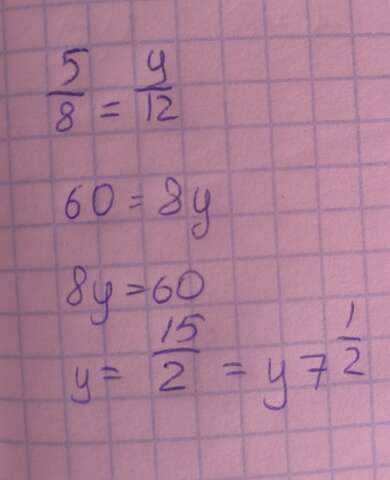 5/8 = y/12
60 = 8y
8y = 60
y = 15/2 = y 7 1/2